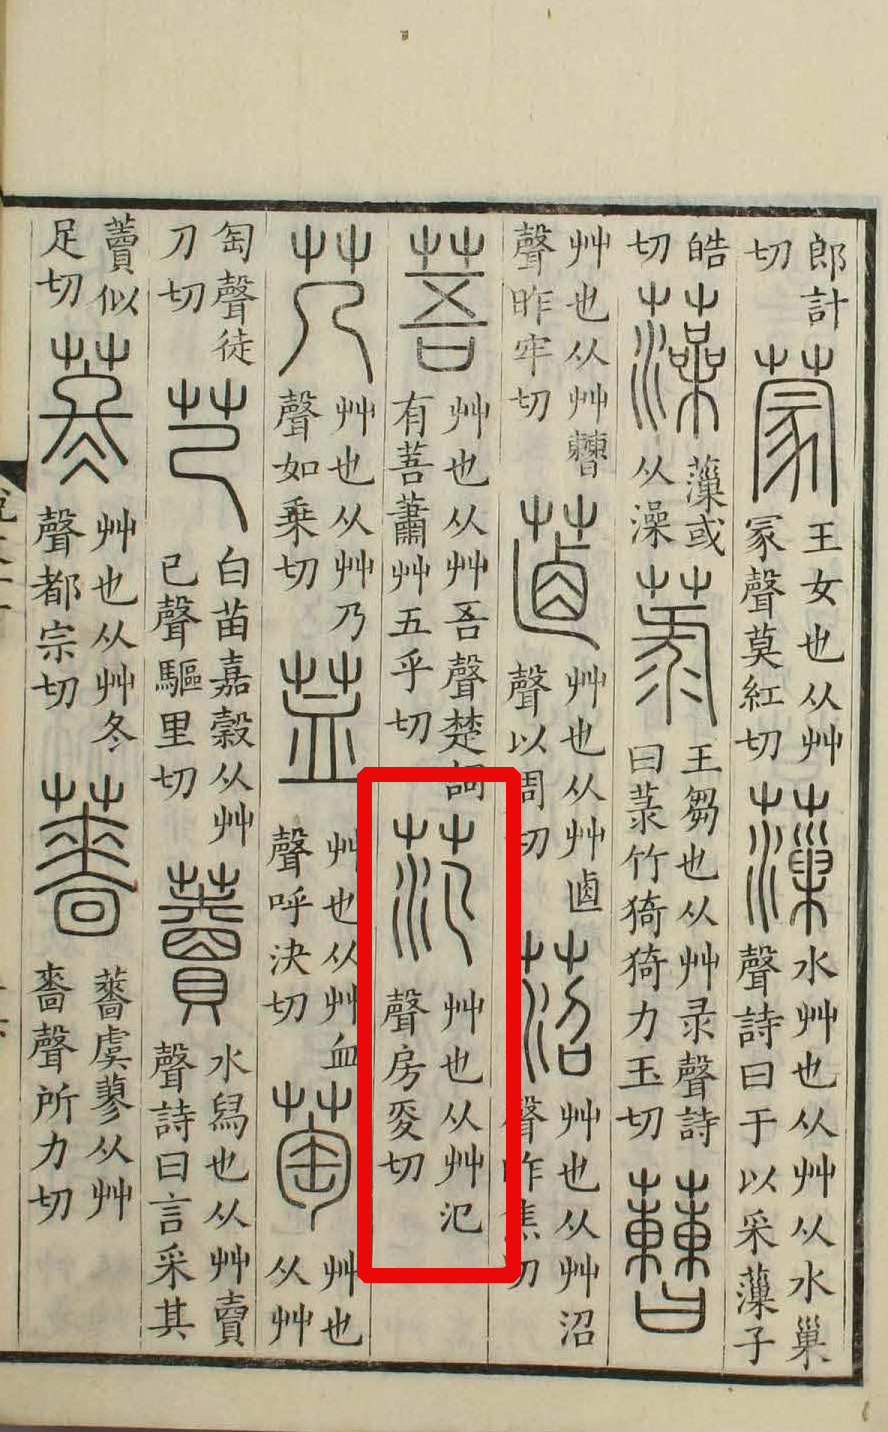 郎計切蒙王女也从艸冡聲莫紅切薻水艸也从艸从水巢聲詩曰于以采薻子
皓切藻薻或从澡菉王芻也从艸录聲詩曰菉竹猗猗力玉切蓸
艸也从艸聲昨牢切艸也从艸卥聲以周切菬艸也从艸沼聲昨焦切
䓊艸也从艸吾聲楚詞有䓊蕭艸五乎切范艸也从艸氾聲房㚇切
艿艸也从艸乃聲如乘切艸也从艸血聲呼決切萄艸也从艸
匋聲徒刀切芑白苗嘉穀从艸己聲驅里切藚水舄也从艸賣聲詩曰言采其
藚似足切苳艸也从艸冬聲都宗切薔薔虞蓼从艸嗇聲所力切